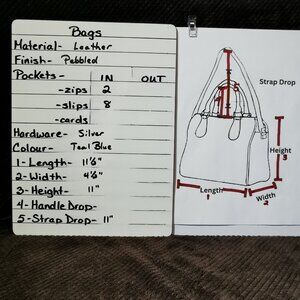 Bags
Material- Leather
Finish- Pebbled
Pockets- IN OUT
-zips 2
-slips 8
-cards
Hardware- Silver
Colour- Teal Blue
1-Length- 11½"
2-Width- 4½"
3-Height- 11"
4-Handle Drop-
5-Strap Drop- 11"
Strap Drop
Height
3
Length
1
Width
2